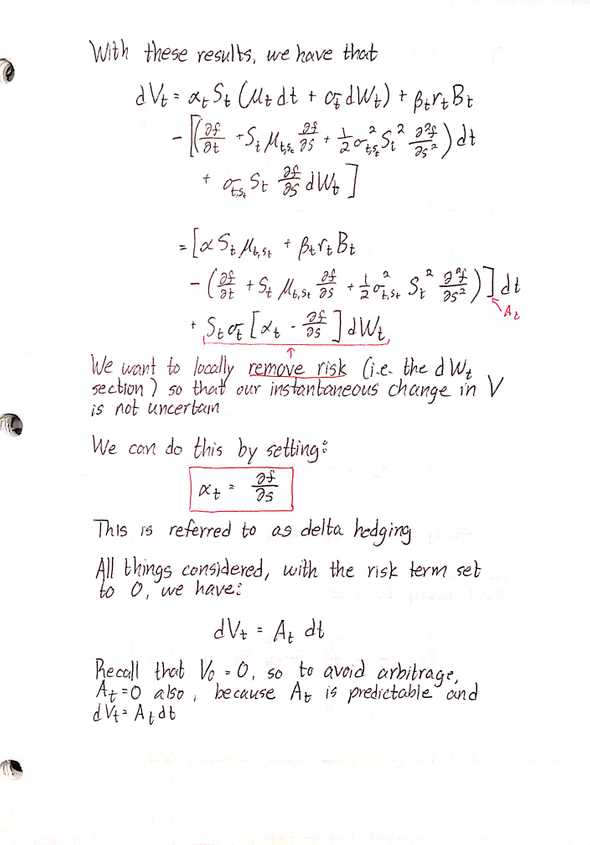 With these results, we have that
dVₜ = αₜSₜ (μₜ dt + σₜ dWₜ) + βₜrₜBₜ
- [(∂f/∂t + Sₜ μₜ,ₛₜ ∂f/∂s + 1/2 σ²ₜ,ₛₜ Sₜ² ∂²f/∂s²) dt
+ σₜ,ₛₜ Sₜ ∂f/∂s dWₜ]
= [α Sₜ μₜ,ₛₜ + βₜrₜBₜ
- (∂f/∂t + Sₜ μₜ,ₛₜ ∂f/∂s + 1/2 σ²ₜ,ₛₜ Sₜ² ∂²f/∂s²)] dt
Aₜ
+ Sₜσₜ [αₜ - ∂f/∂s] dWₜ
We want to locally remove risk (i.e. the dWₜ
section) so that our instantaneous change in V
is not uncertain
We can do this by setting:
αₜ = ∂f/∂s
This is referred to as delta hedging
All things considered, with the risk term set
to 0, we have:
dVₜ = Aₜ dt
Recall that V₀ = 0, so to avoid arbitrage,
Aₜ = 0 also, because Aₜ is predictable and
dVₜ = Aₜ dt